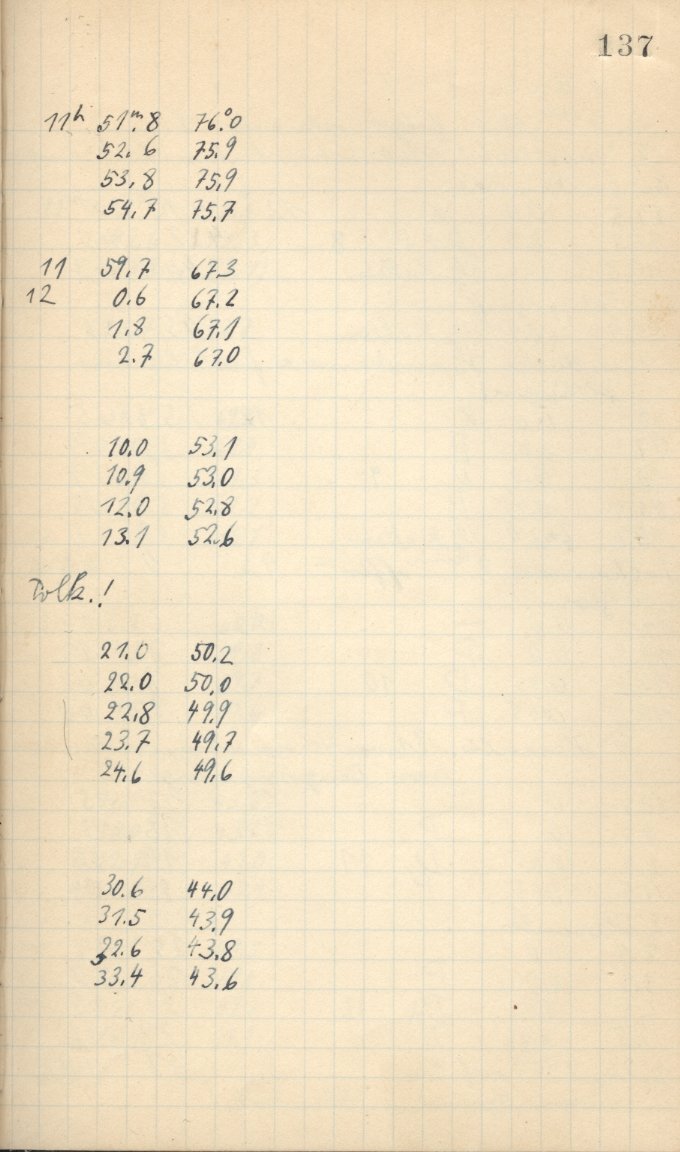 137
11h 51m.8 76°.0
52.6 75.9
53.8 75.9
54.7 75.7
11 59.7 67.3
12 0.6 67.2
1.8 67.1
2.7 67.0
10.0 53.1
10.9 53.0
12.0 52.8
13.1 52.6
Polk.!
21.0 50.2
22.0 50.0
22.8 49.9
23.7 49.7
24.6 49.6
30.6 44.0
31.5 43.9
32.6 43.8
33.4 43.6